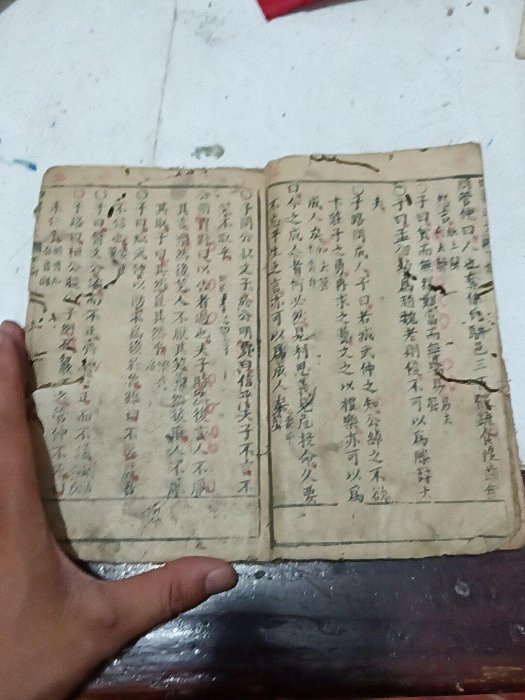 問管仲曰人也奪伯氏駢邑三
子曰貧而無怨難富而無驕易
子曰孟公綽為趙魏老則優不可以為滕薛大
夫
子路問成人子曰若臧武仲之知公綽之不欲
卞莊子之勇冉求之藝文之以禮樂亦可以為
成人矣
曰今之成人者何必然見利思義見危授命久要
不忘平生之言亦可以為成人矣
子問公叔文子於公明賈曰信乎夫子不言不
笑不取乎
公明賈對曰以告者過也夫子時然後言人不厭
其言樂然後笑人不厭其笑義然後取人不厭
其取子曰其然豈其然乎
子曰臧武仲以防求為後於魯雖曰不要君
不信也
子曰晉文公譎而不正齊桓公正而不譎
子路曰桓公殺公子糾召忽死之管仲不死